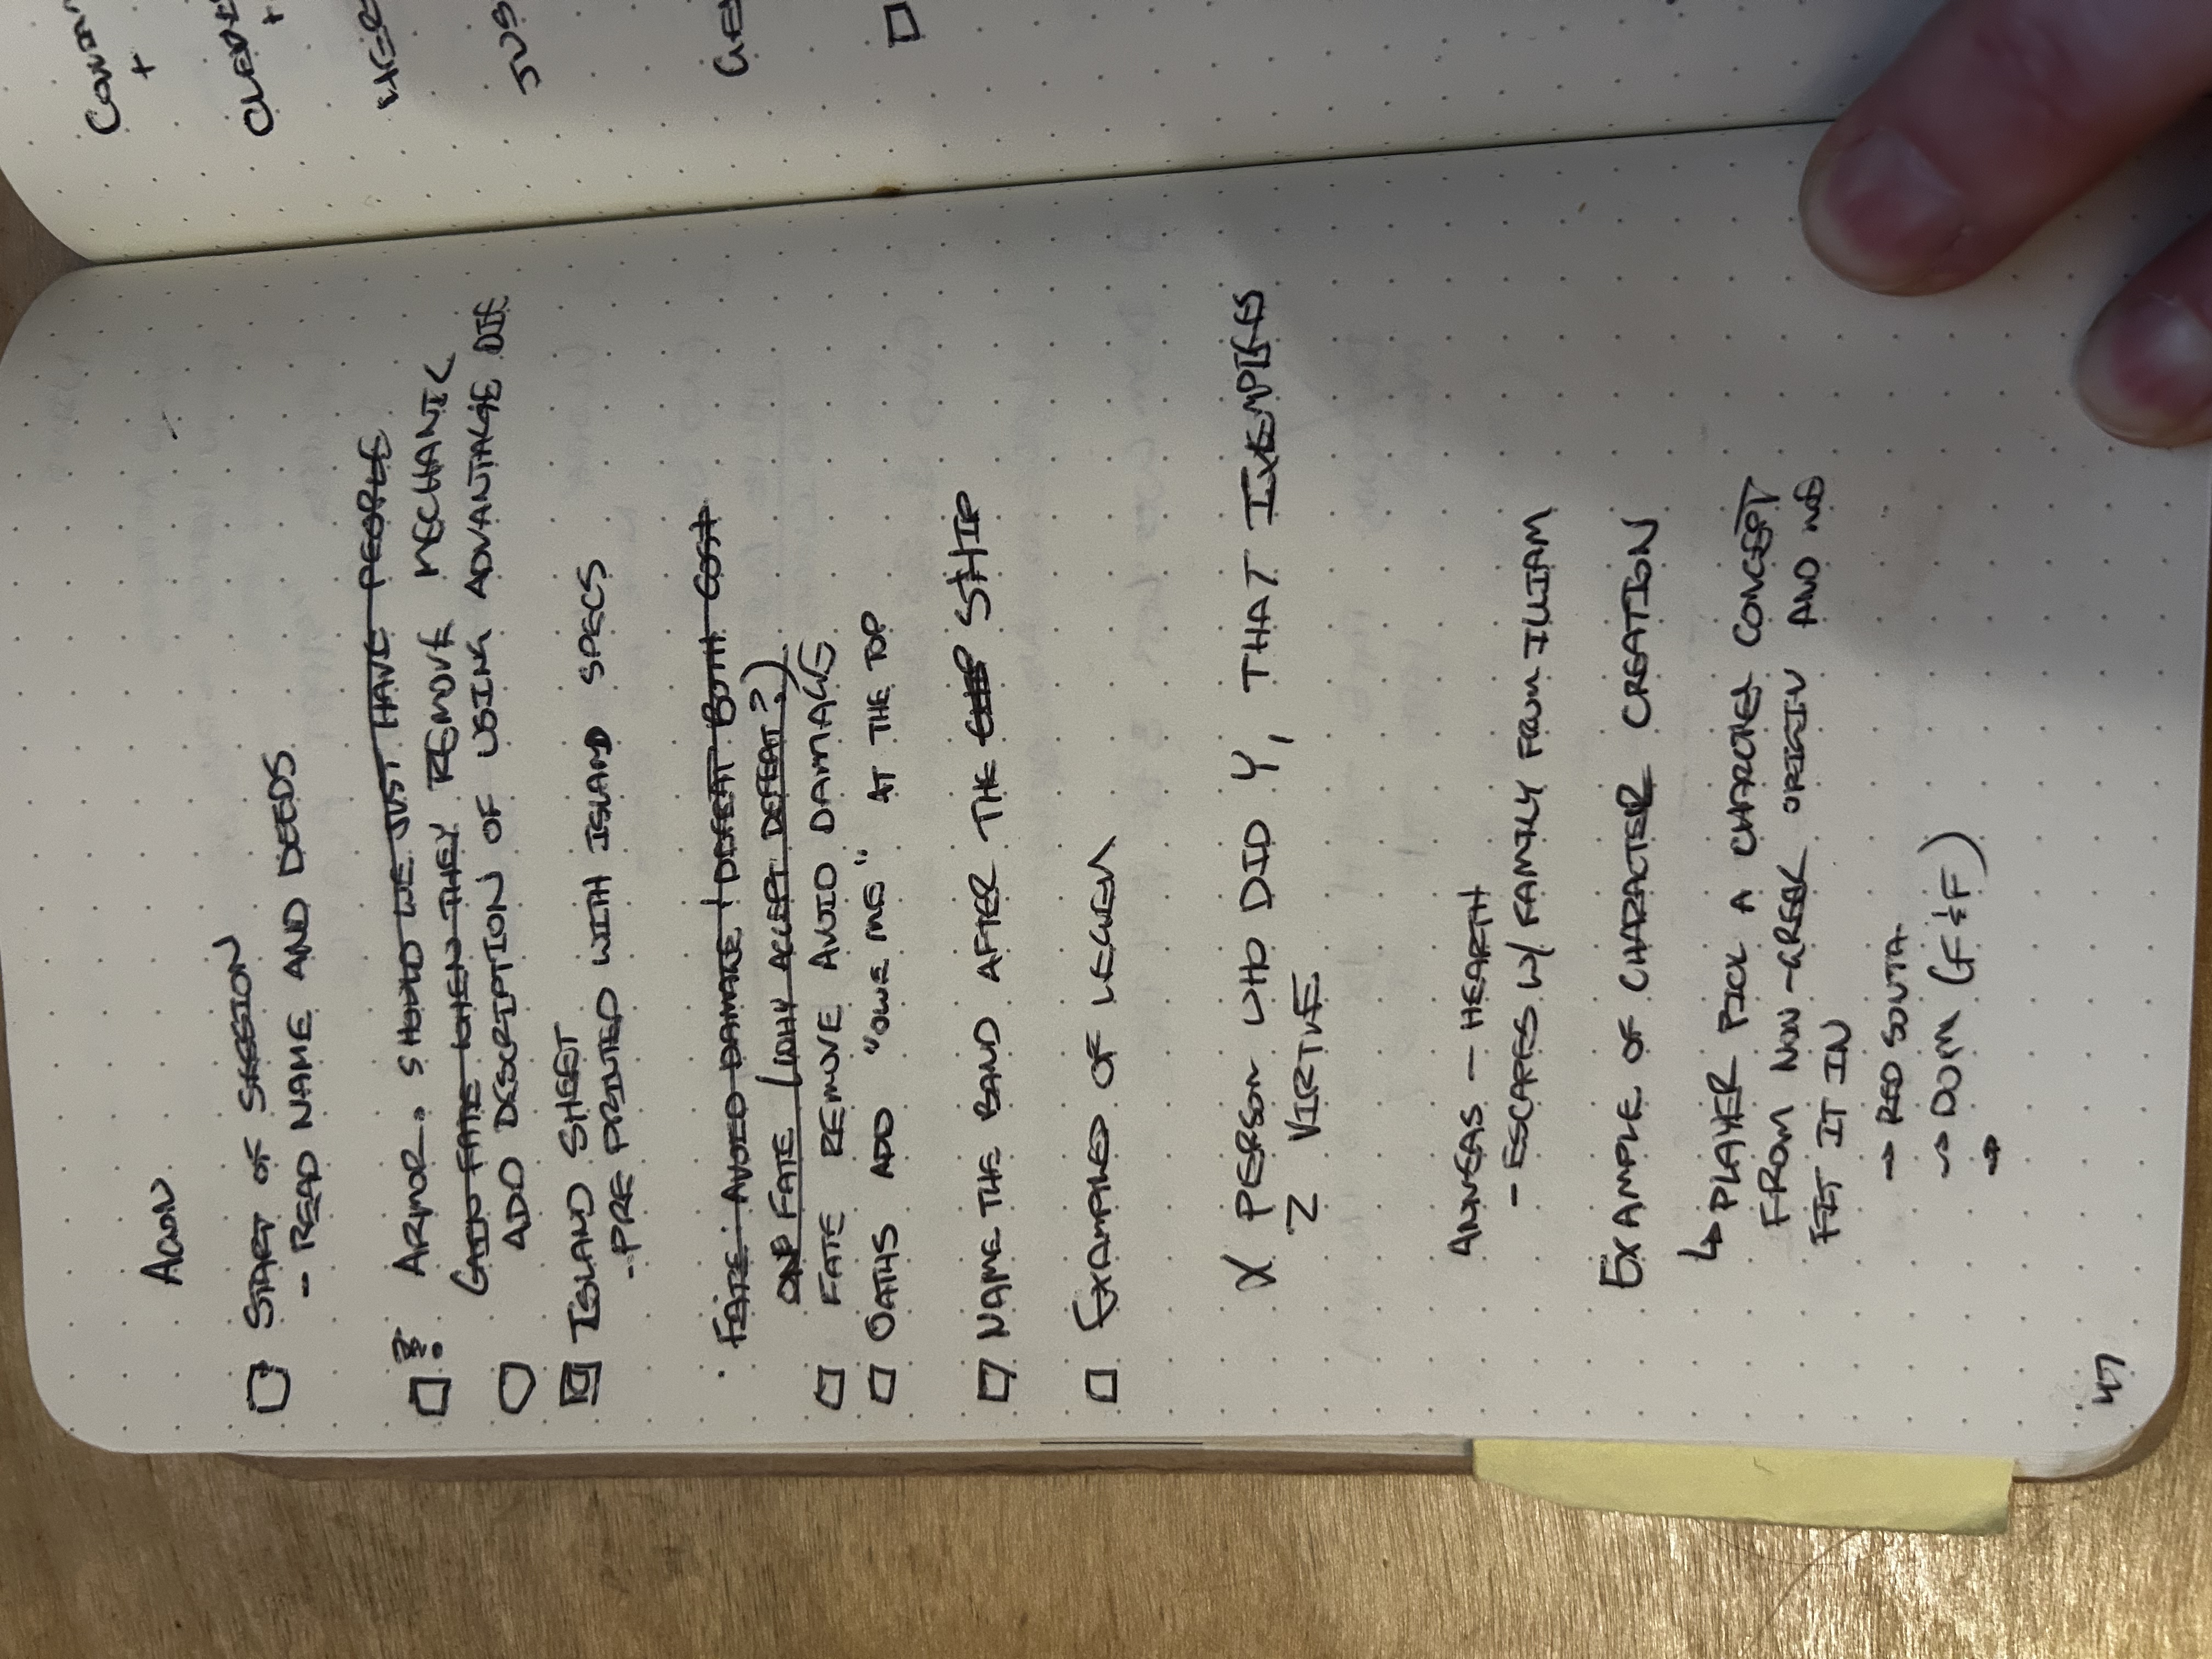 AGON
□ START OF SESSION
- READ NAME AND DEEDS
□ ?! ARMOR. SHOULD WE JUST HAVE PEOPLE
GAIN FATE WHEN THEY REMOVE MECHANIC
ADD DESCRIPTION OF USING ADVANTAGE DIE
ISLAND SHEET
- PRE PRINTED WITH ISLAND SPECS
· FATE: AVOID DAMAGE / DEFEAT BOTH COST
ONE FATE (WHY ACCEPT DEFEAT?)
□ FATE REMOVE AVOID DAMAGE
□ OATHS ADD "OWE ME" AT THE TOP
□ NAME THE BAND AFTER THE SHIP
□ EXAMPLES OF
X PERSON WHO DID Y, THAT EXEMPLIFIES
Z VIRTUE
AENEAS - HEARTH
- ESCAPES W/ FAMILY FROM ILLIAM
EXAMPLE OF CHARACTER CREATION
↳ PLAYER PICK A CHARACTER CONCEPT
FROM NON-GREEK ORIGIN AND WE
FIT IT IN
→ RED SONJA
→ DOM (F&F)
→
47
+
+
JUS
□